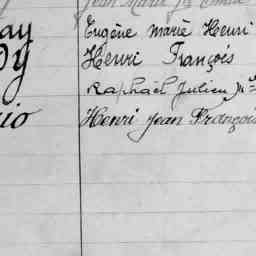 Jean Marie
ay Eugène marie Henri
y Henri François
Raphaël Julien M
io Henri Jean François